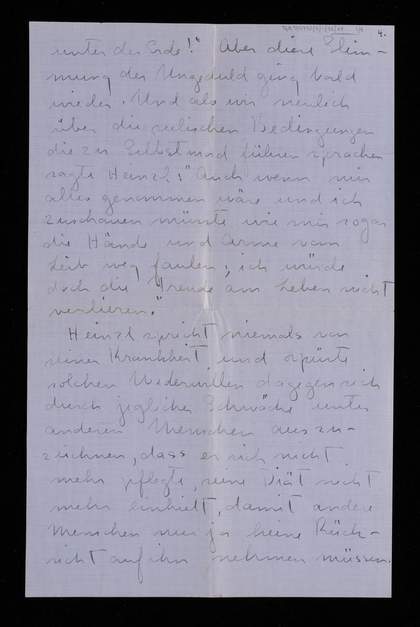 4.
unter der Erde!" Aber diese Stim-
mung der Ungeduld ging bald
wieder. Und als wir neulich
über die seelischen Bedingungen
die zu Selbstmord führen sprachen
sagte Heinzl: "Auch wenn mir
alles genommen wäre und ich
zuschauen müsste wie mir sogar
die Hände und Arme vom
Leib weg faulen, ich würde
doch die Freude am Leben nicht
verlieren."
Heinzl spricht niemals von
seiner Krankheit und spürte
solchen Widerwillen dagegen sich
durch jegliche Schwäche unter
anderen Menschen auszu-
zeichnen, dass er sich nicht
mehr pflegte, seine Diät nicht
mehr einhielt, damit andere
Menschen nur ja keine Rück-
sicht auf ihn nehmen müssen.